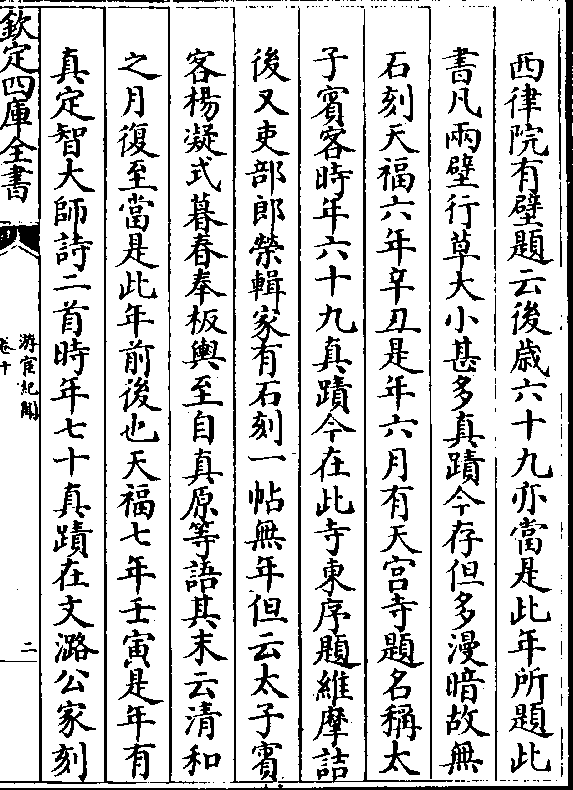 西律院有壁題云後歳六十九亦當是此年所題此
書凡兩壁行草大小甚多真蹟今存但多漫暗故無
石刻天福六年辛丑是年六月有天宮寺題名稱太
子賓客時年六十九真蹟今在此寺東序題維摩詰
後又吏部郎榮輯家有石刻一帖無年但云太子賓
客楊凝式暮春奉板輿至自真原等語其末云清和
之月復至當是此年前後也天福七年壬寅是年有
真定智大師詩二首時年七十真蹟在文潞公家刻
欽定四庫全書
游宦紀聞
卷十
二